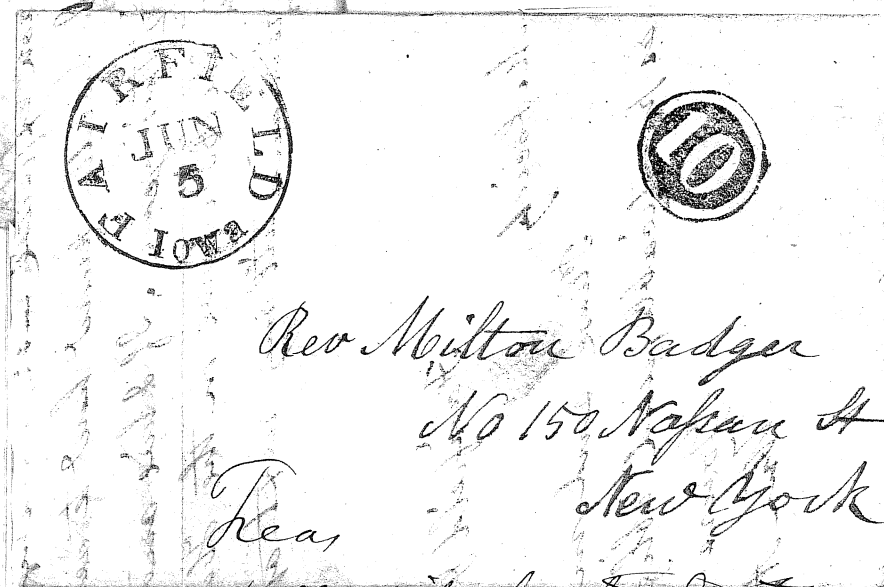 FAIRFIELD
JUN
5
IOWA
10
Rev Milton Badger
No 150 Naſsau St
New York
Treas,